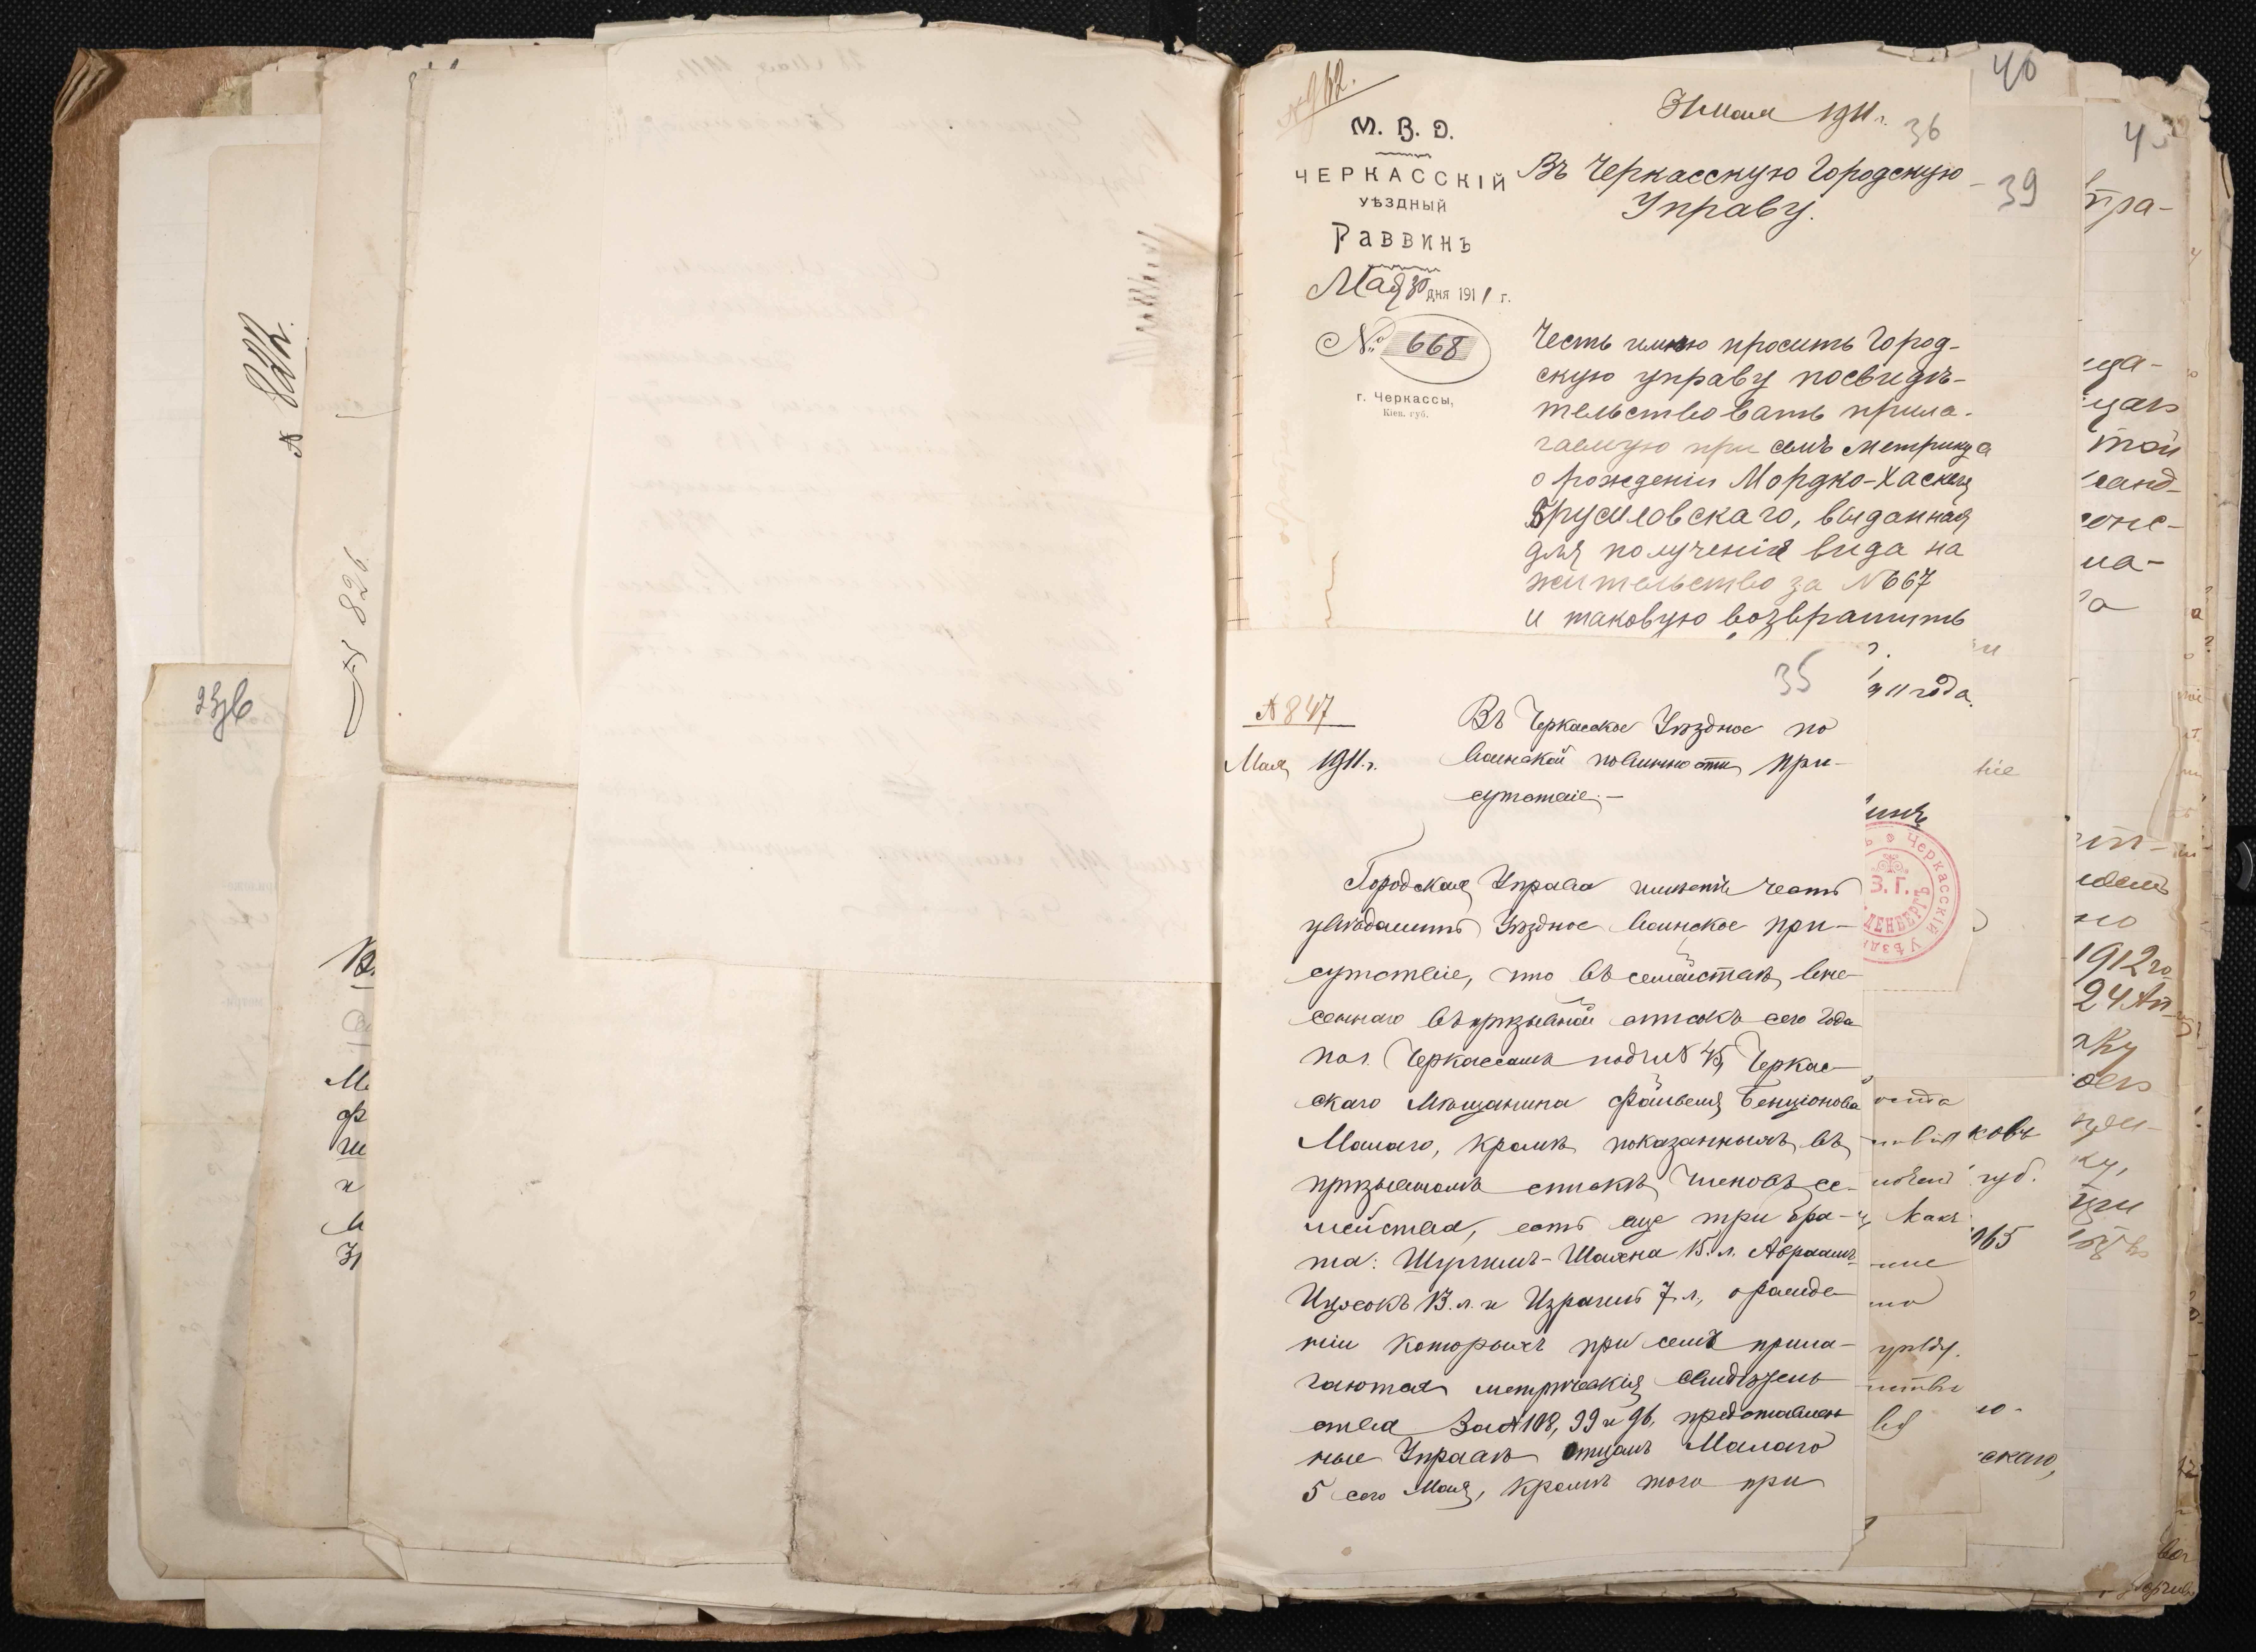 № 842.
№ 826.
№ 962.
31 Мая 1911 г.
36
М. В. Д.
ЧЕРКАССКІЙ
УѢЗДНЫЙ
Раввинъ
Мая 30 дня 1911 г.
№ 668
г. Черкассы,
Кіев. губ.
Въ Черкасскую Городскую
Управу.
Честь имѣю просить Город-
скую управу посвидѣ-
тельствовать прила-
гаемую при семъ метрику
о рожденіи Мордко-Хаскеля
Брусиловскаго, выданная
для полученія вида на
жительство за №667
и таковую возвратить
35
№ 847
Мая 1911 г.
Въ Черкасское Уѣздное по
воинской повинности при-
сутствіе.-
Городская Управа имѣетъ честь
увѣдомить Уѣздное воинское при-
сутствіе, что въ семействѣ, вне-
сеннаго въ призывной списокъ сего года
по г. Черкассамъ подъ № 45, Черкас-
скаго Мѣщанина Файвеля Бенціонова
Малаго, кромѣ показанныхъ въ
призывномъ спискѣ членовъ се-
мейства, есть еще три бра-
та: Шулимъ-Шахна 15 л. Авраамъ-
Ицхокъ 13 л. и Израиль 7 л., о рожде-
ніи которыхъ при семъ прила-
гаются метрическія свидѣтель-
ства За № 108, 99 и 96, представлен-
ные Управѣ отцомъ Малаго
5 сего Мая, кромѣ того при
11 года.
Черкасскій Уѣздн
З. Г.
ДЕНБЕРГЪ
40
39
ковъ
губ.
скаго,
пра-
той
1912 го
24 Ап